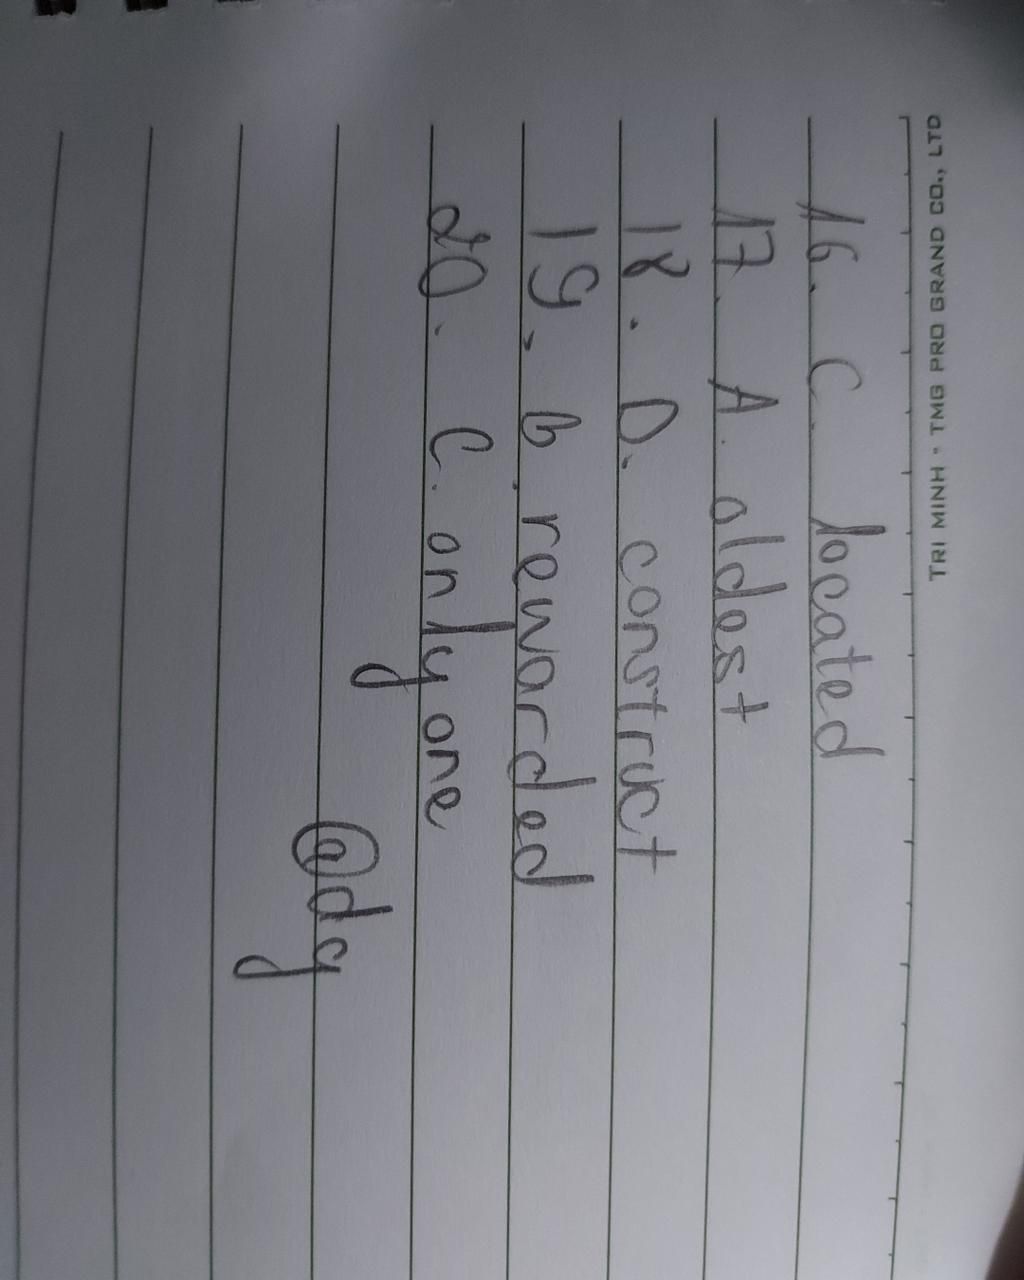 TRI MINH • TMG PRO GRAND CO., LTD
16. C. located
17. A. oldest
18. D. construct
19. b. rewarded
20. C. only one
@dy